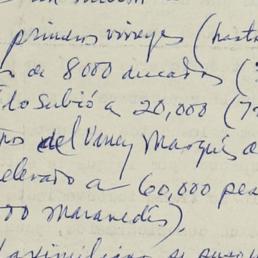 primeros virreyes (hasta
de 8000 ducados (
lo subió a 20,000 (7
del Virrey Marqués d
elevado a 60,000 pes
00 maravedís).
Maximiliano se puso